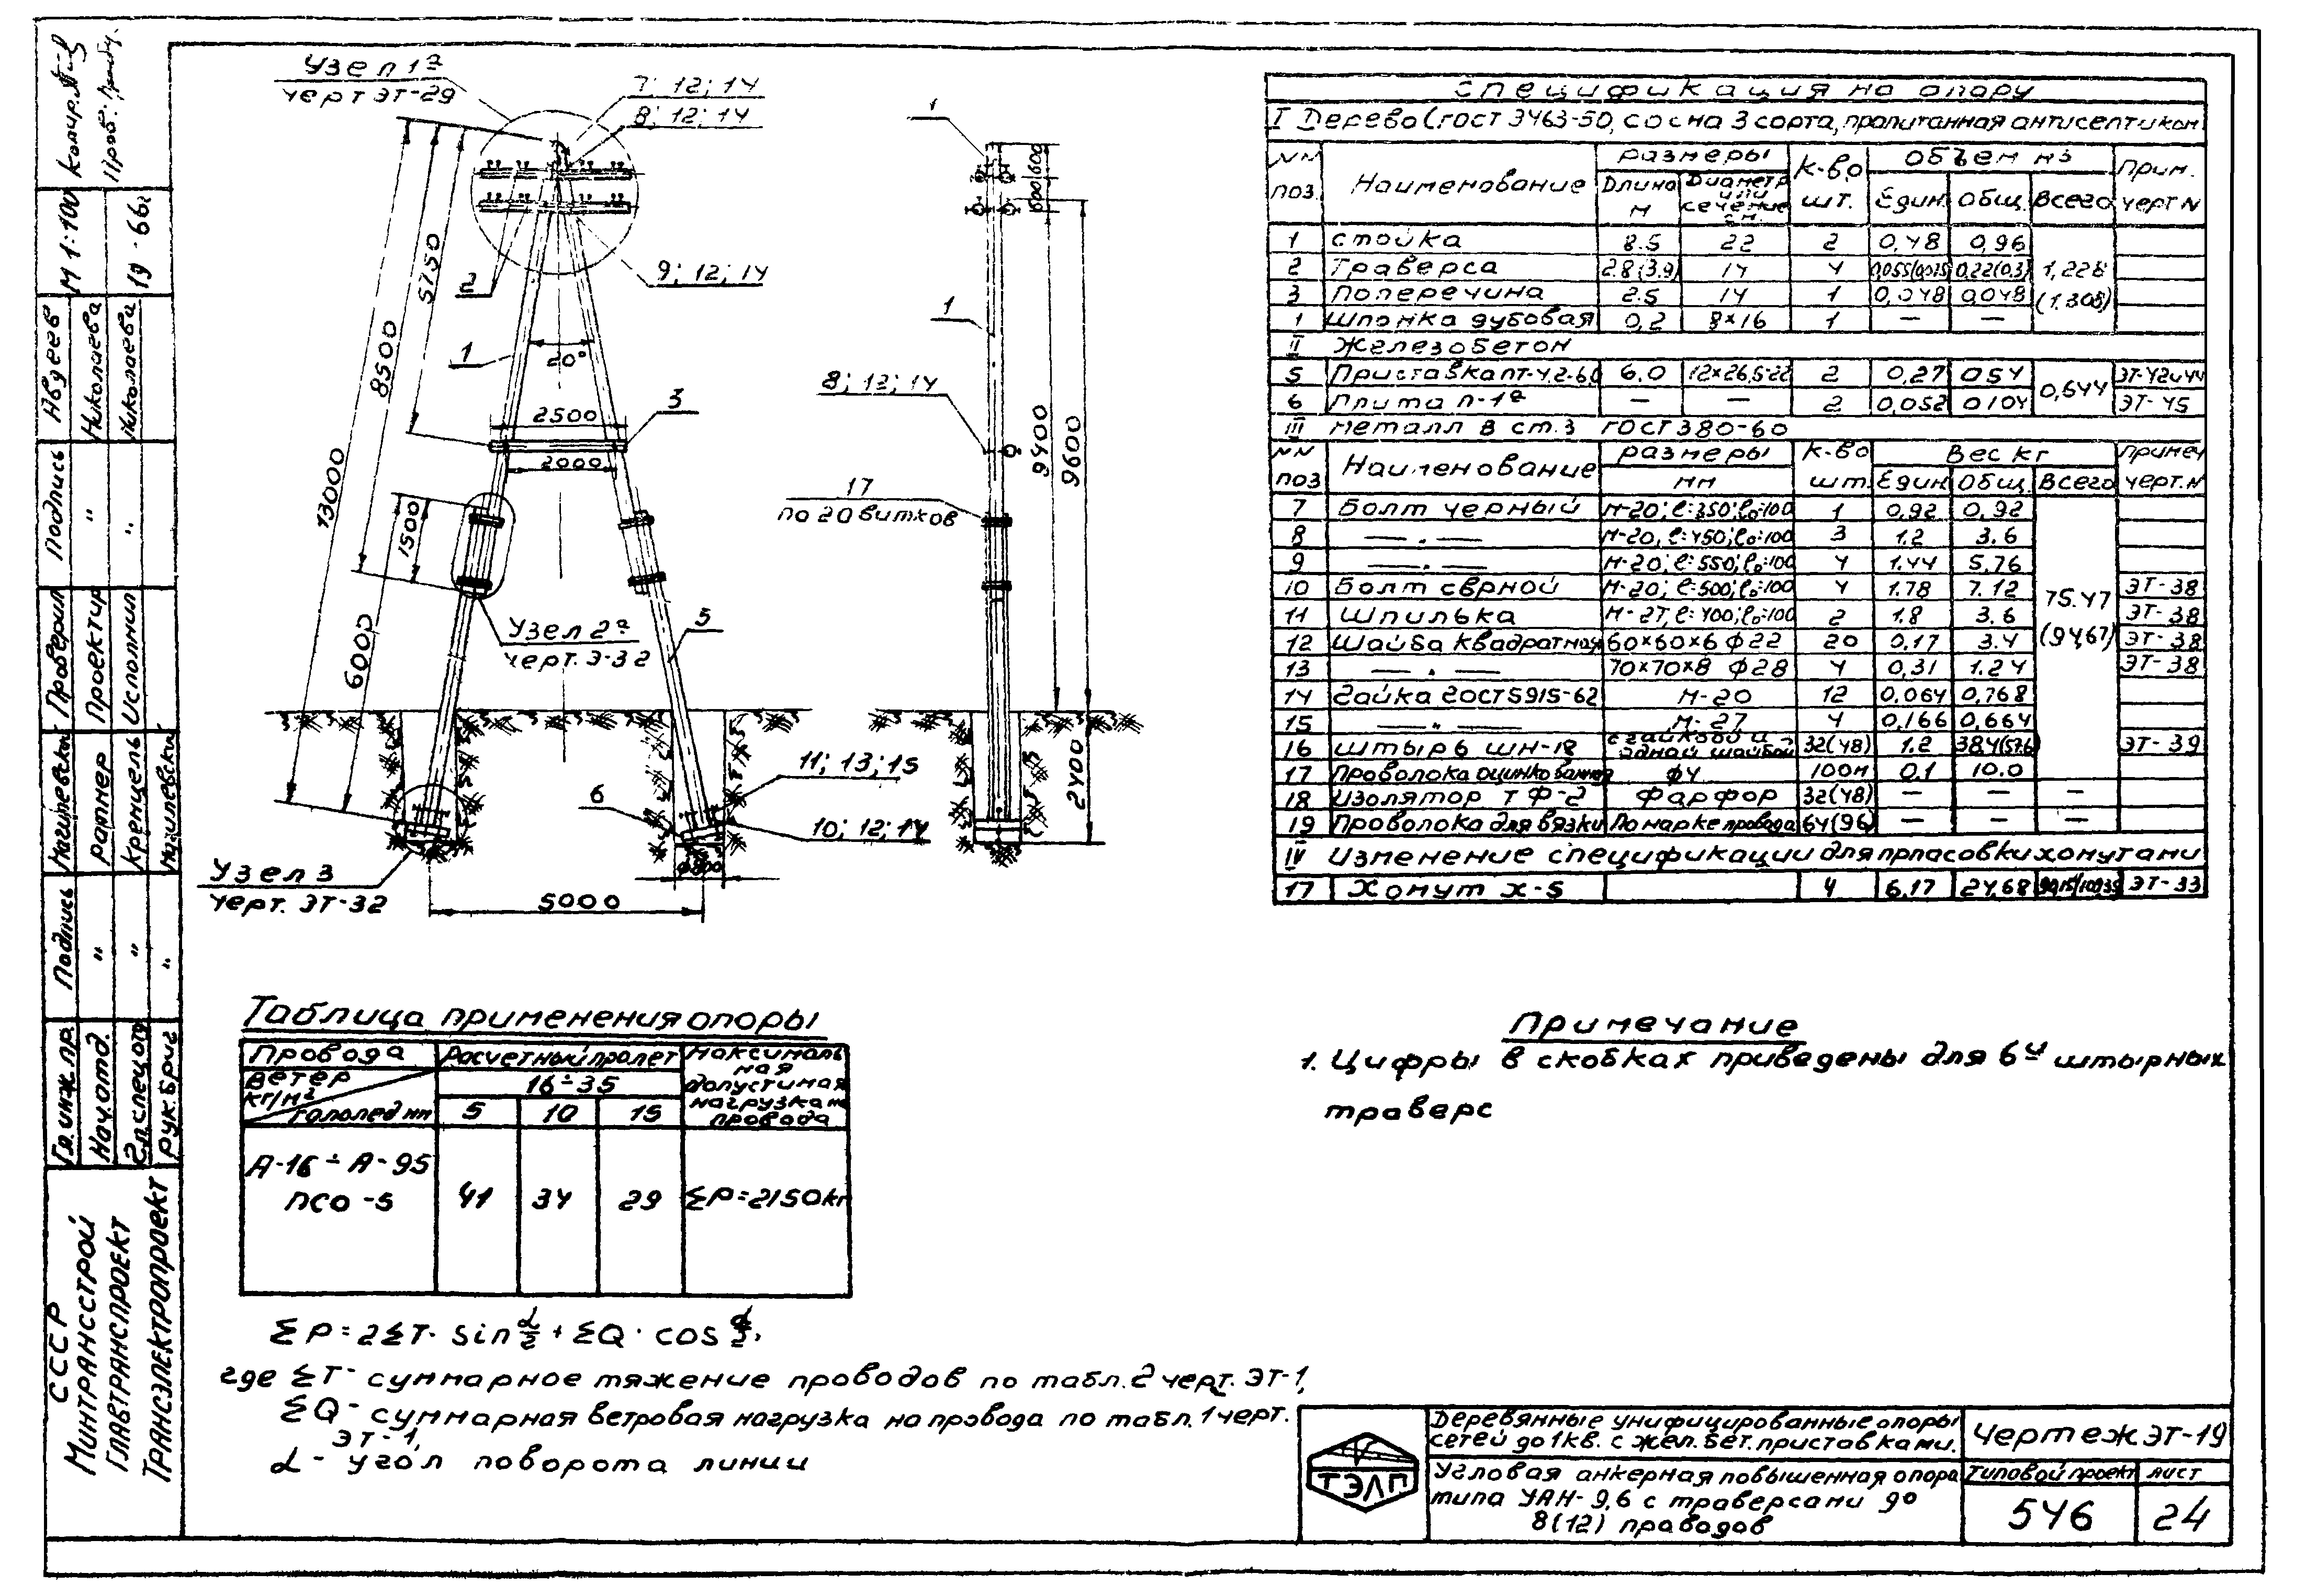 Узел 1а
черт ЭТ-29
7; 12; 14
8; 12; 14
9; 12; 14
2
1
20°
2500
3
2000
5750
8500
13000
1500
6000
Узел 2а
черт. Э-32
5
11; 13; 15
10; 12; 14
6
Узел 3
черт. ЭТ-32
5000
1
600
600
1
8; 12; 14
17
по 20 витков
9400
9600
2400
Спецификация на опору
I Дерево (гост 3463-50, сосна 3 сорта, пропитанная антисептиком
NN поз. Наименование Размеры Длина м Диаметр или сечение см. К-во шт. Объем м3 Един. Общ. Всего Прим. черт N
1 Стойка 8.5 22 2 0,48 0,96
2 Траверса 2.8(3.9) 14 4 0,055(0,075) 0,22(0,3) 1,228
3 Поперечина 2.5 14 1 0,048 0,048 (1.308)
1 Шпонка дубовая 0,2 8×16 1 — —
II Железобетон
5 Приставка ПТ-4,2-6,0 6.0 12×26,5-22 2 0,27 0.54 0,644 ЭТ-42и44
6 Плита п-1а — — 2 0,052 0.104 ЭТ-45
III Металл В ст.3 ГОСТ 380-60
NN поз Наименование Размеры мм К-во шт. Вес кг Един. Общ. Всего Примеч черт. N
7 Болт черный М-20; ℓ=350; ℓо=100 1 0,92 0,92
8 — " — М-20; ℓ=450; ℓо=100 3 1.2 3.6
9 — " — М-20; ℓ=550; ℓо=100 4 1.44 5.76
10 Болт сврной М-20; ℓ=500; ℓо=100 4 1.78 7.12 75.47 ЭТ-38
11 Шпилька М-27, ℓ=400; ℓо=100 2 1.8 3.6 ЭТ-38
12 Шайба квадратная 60×60×6 ф22 20 0,17 3.4 (94,67) ЭТ-38
13 — " — 70×70×8 ф28 4 0,31 1.24 ЭТ-38
14 Гайка гост 5915-62 М-20 12 0,064 0,768
15 — " — М-27 4 0,166 0,664
16 Штырь ШН-18 с гайкой и одной шайбой 32(48) 1.2 38.4(57.6) ЭТ-39
17 Проволока оцинкованная ф4 100м 0.1 10.0
18 Изолятор ТФ-2 Фарфор 32(48) — — —
19 Проволока для вязки По марке провода 64(96) — — —
IV Изменение спецификации для припасовки хомутами
17 Хомут х-5 4 6.17 24,68 ЭТ-33
Таблица применения опоры
Провода Расчетный пролет Максимальная допустимая нагрузка на провода
Ветер кг/м2 16÷35
Гололед мм 5 10 15
А-16÷А-95
ПСО-5 41 34 29 ΣР=2150кг
ΣР=2ΣТ· sin α/2 + ΣQ · cos α/2,
где ΣТ- суммарное тяжение проводов по табл. 2 черт. ЭТ-1,
ΣQ- суммарная ветровая нагрузка на провода по табл. 1 черт.
ЭТ-1,
α- угол поворота линии
Примечание
1. Цифры в скобках приведены для 6й штырных
траверс
ТЭЛП
Деревянные унифицированные опоры
сетей до 1кв. с жел. бет. приставками.
Угловая анкерная повышенная опора
типа УАН-9,6 с траверсами до
8(12) проводов
Чертеж ЭТ-19
Типовой проект Лист
546 24
Копир.
Пров.:
М 1:100
19 - 66г
Проверил Подпись Авдеев
Проектир " Николаева
Исполнил " Николаева
Гл. инж. пр. Подпись
Нач. отд. " Ратнер
Гл. спец. отд " Кренцель
Рук. бриг "
СССР
Минтрансстрой
Главтранспроект
Трансэлектропроект